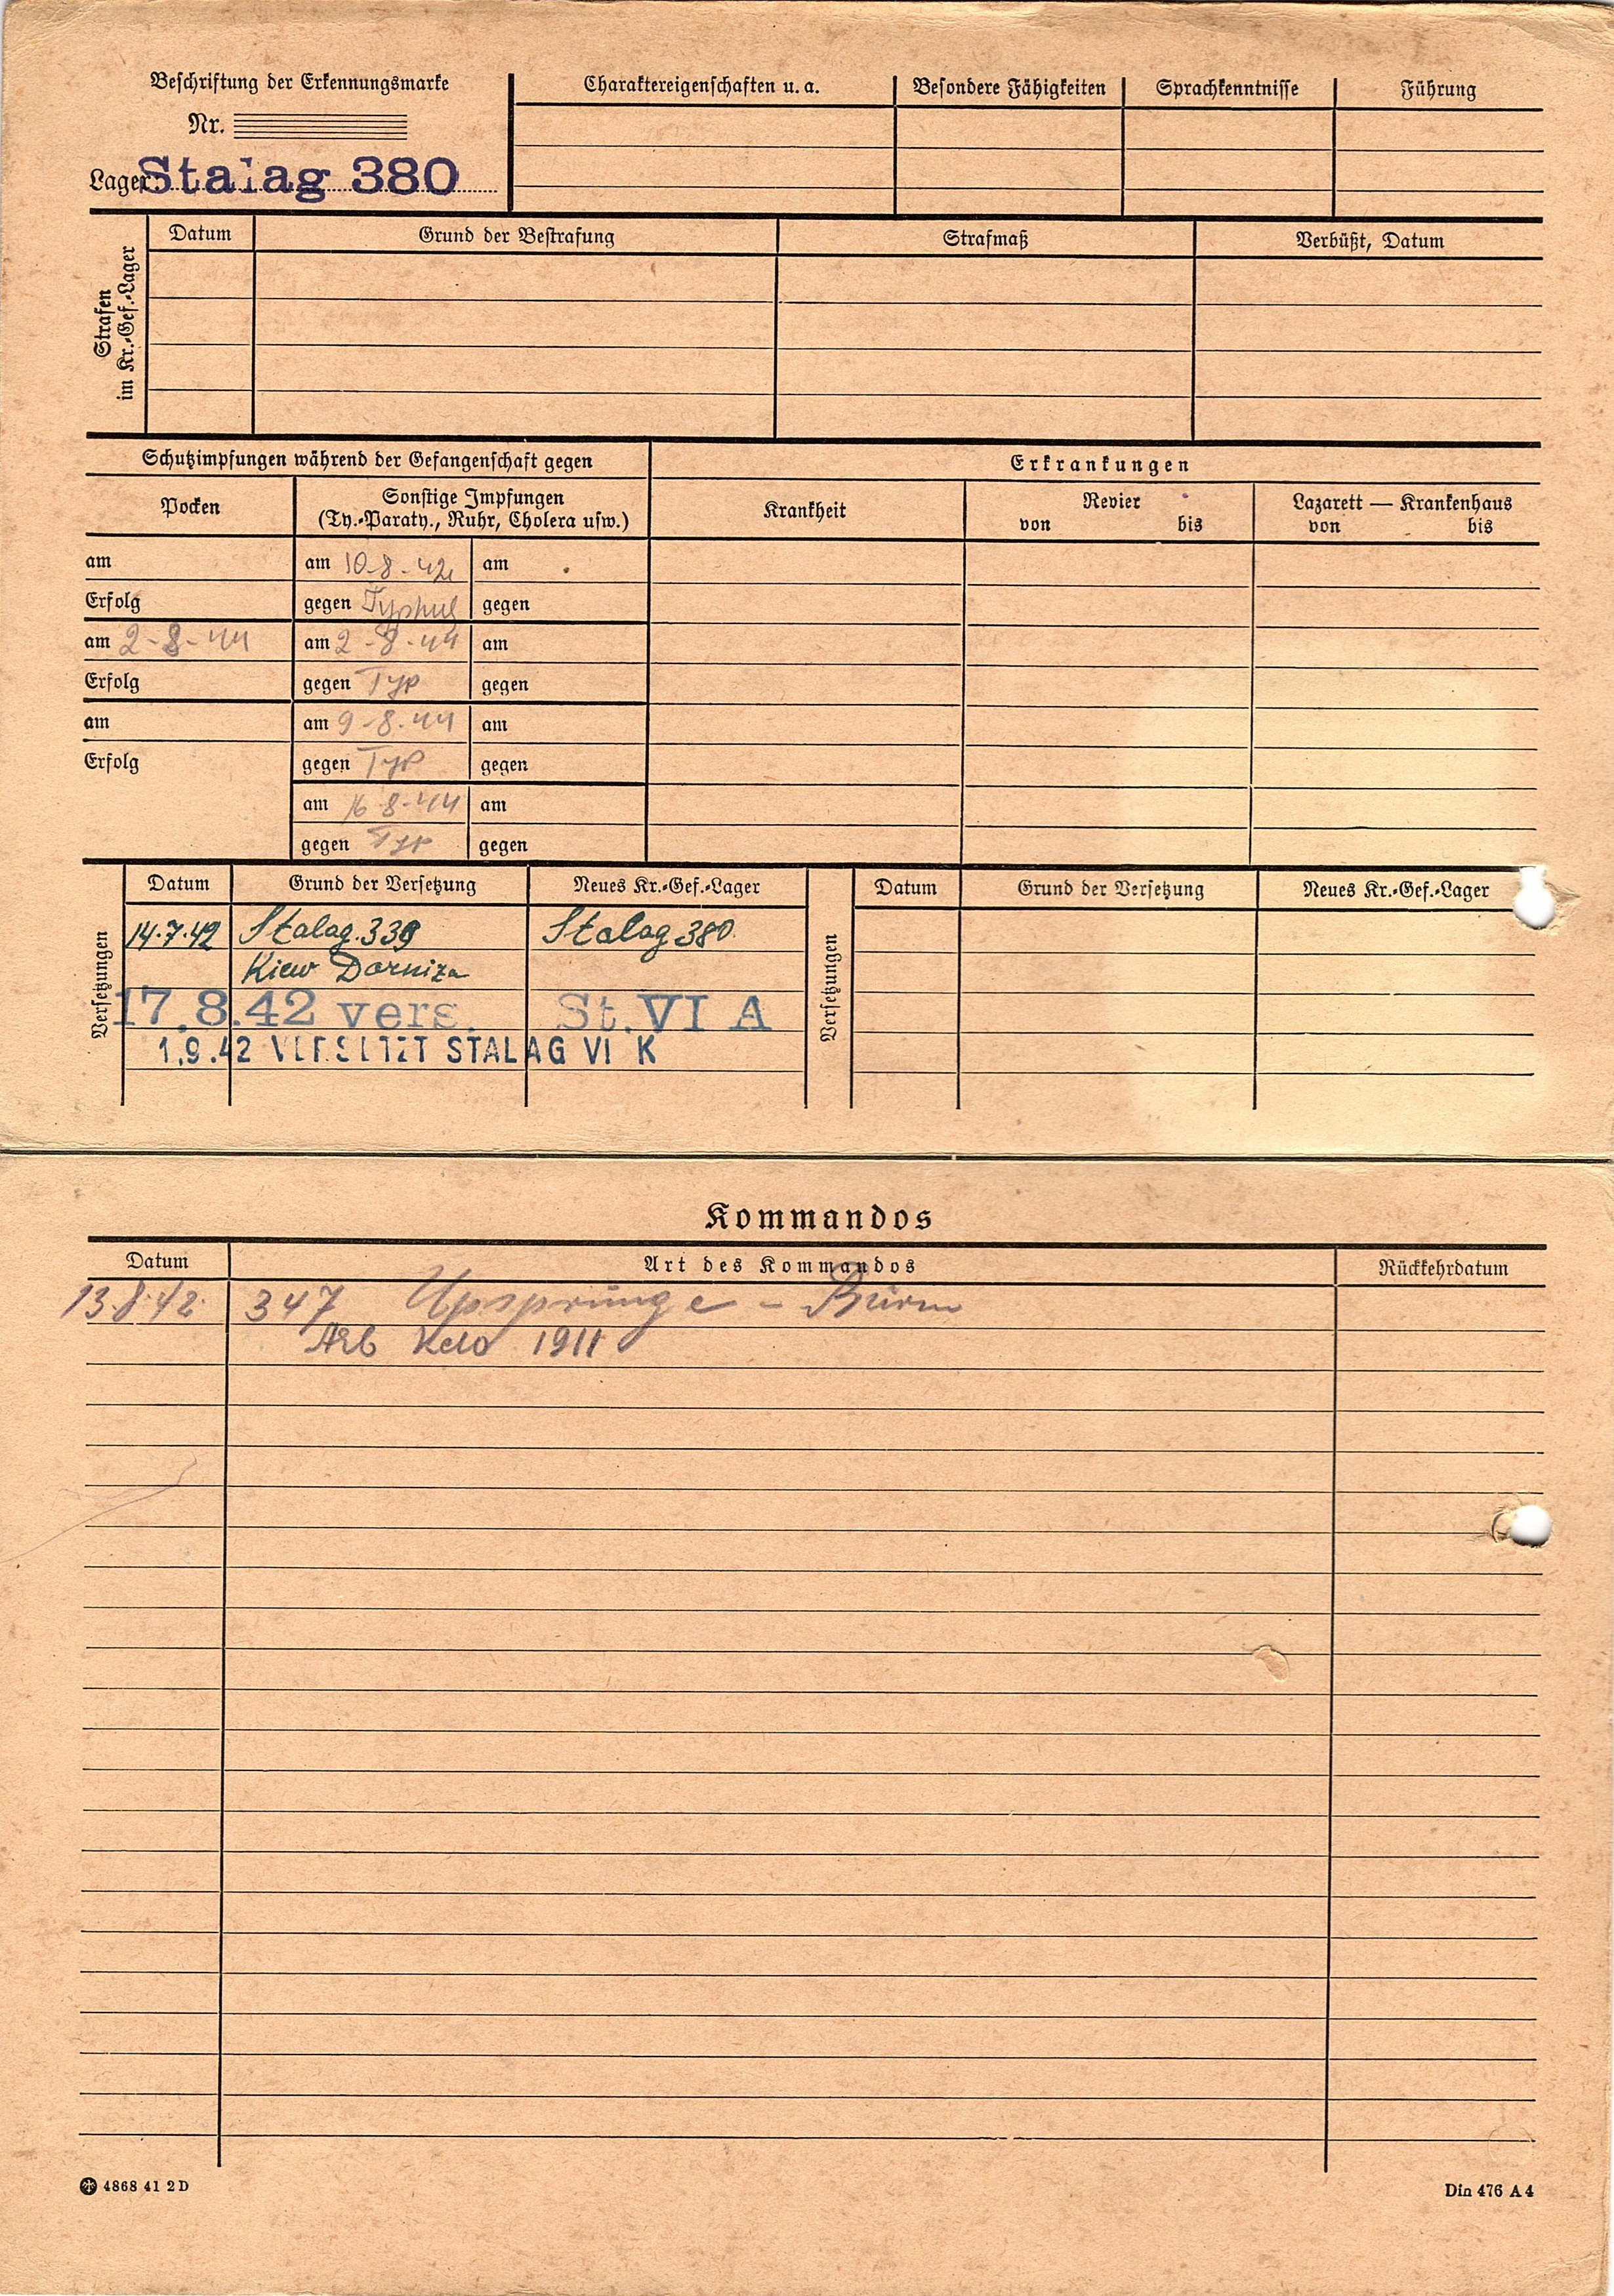 Beschriftung der Erkennungsmarke
Nr.
Lager: Stalag 380
Charaktereigenschaften u. a.
Besondere Fähigkeiten
Sprachkenntnisse
Führung
Strafen
im Kr.-Gef.-Lager
Datum
Grund der Bestrafung
Strafmaß
Verbüßt, Datum
Schutzimpfungen während der Gefangenschaft gegen
Erkrankungen
Pocken
Sonstige Impfungen
(Ty.-Paraty., Ruhr, Cholera usw.)
Krankheit
Revier
von bis
Lazarett — Krankenhaus
von bis
am am 10-8-42 am
Erfolg gegen Typhus gegen
am 2-8-44 am 2-8-44 am
Erfolg gegen Typ gegen
am am 9-8-44 am
Erfolg gegen Typ gegen
am 16-8-44 am
gegen Typ gegen
Versetzungen
Datum Grund der Versetzung Neues Kr.-Gef.-Lager
14.7.42 Stalag 339 Stalag 380
Kiew Darniza
17.8.42 vers. St. VI A
1.9.42 VERSETZT STALAG VI K
Versetzungen
Datum Grund der Versetzung Neues Kr.-Gef.-Lager
Kommandos
Datum Art des Kommandos Rückkehrdatum
13.8.42. 347 Upsprunge - Büren
Arb Kdo 1911
4868 41 2 D
Din 476 A 4